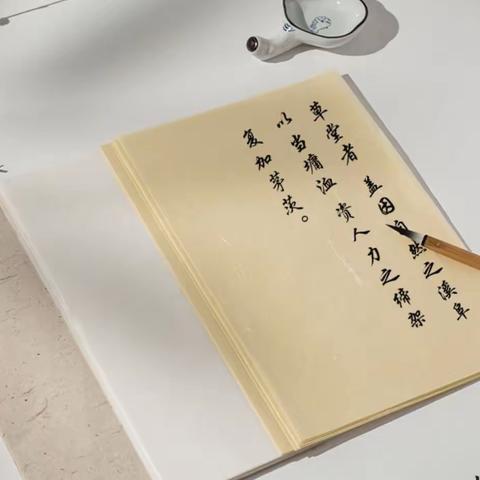 草堂者 盖因自然之溪阜
以当墉洫资人力之缔架
复加茅茨。